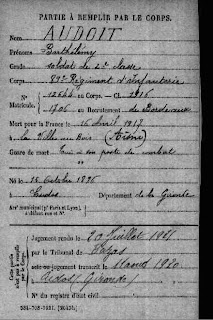 PARTIE À REMPLIR PAR LE CORPS.
Nom AUDOIT
Prénoms Barthélemy
Grade soldat de 2e classe
Corps 89e Régiment d'Infanterie
N° 12546 au Corps. — Cl. 1916
Matricule. 1706 au Recrutement de Bordeaux
Mort pour la France le 16 avril 1917
à la Ville au Bois (Aisne)
Genre de mort Tué à son poste de combat
Né le 15 Octobre 1896
à Département de la Gironde
Arrt municipal (p' Paris et Lyon),
à défaut rue et N°.
Cette partie n'est pas à remplir par le Corps.
Jugement rendu le 20 Juillet 1921
par le Tribunal de Bazas
acte ou jugement transcrit le août 1920
(Gironde)
N° du registre d'état civil
534-708-1921. [26434]